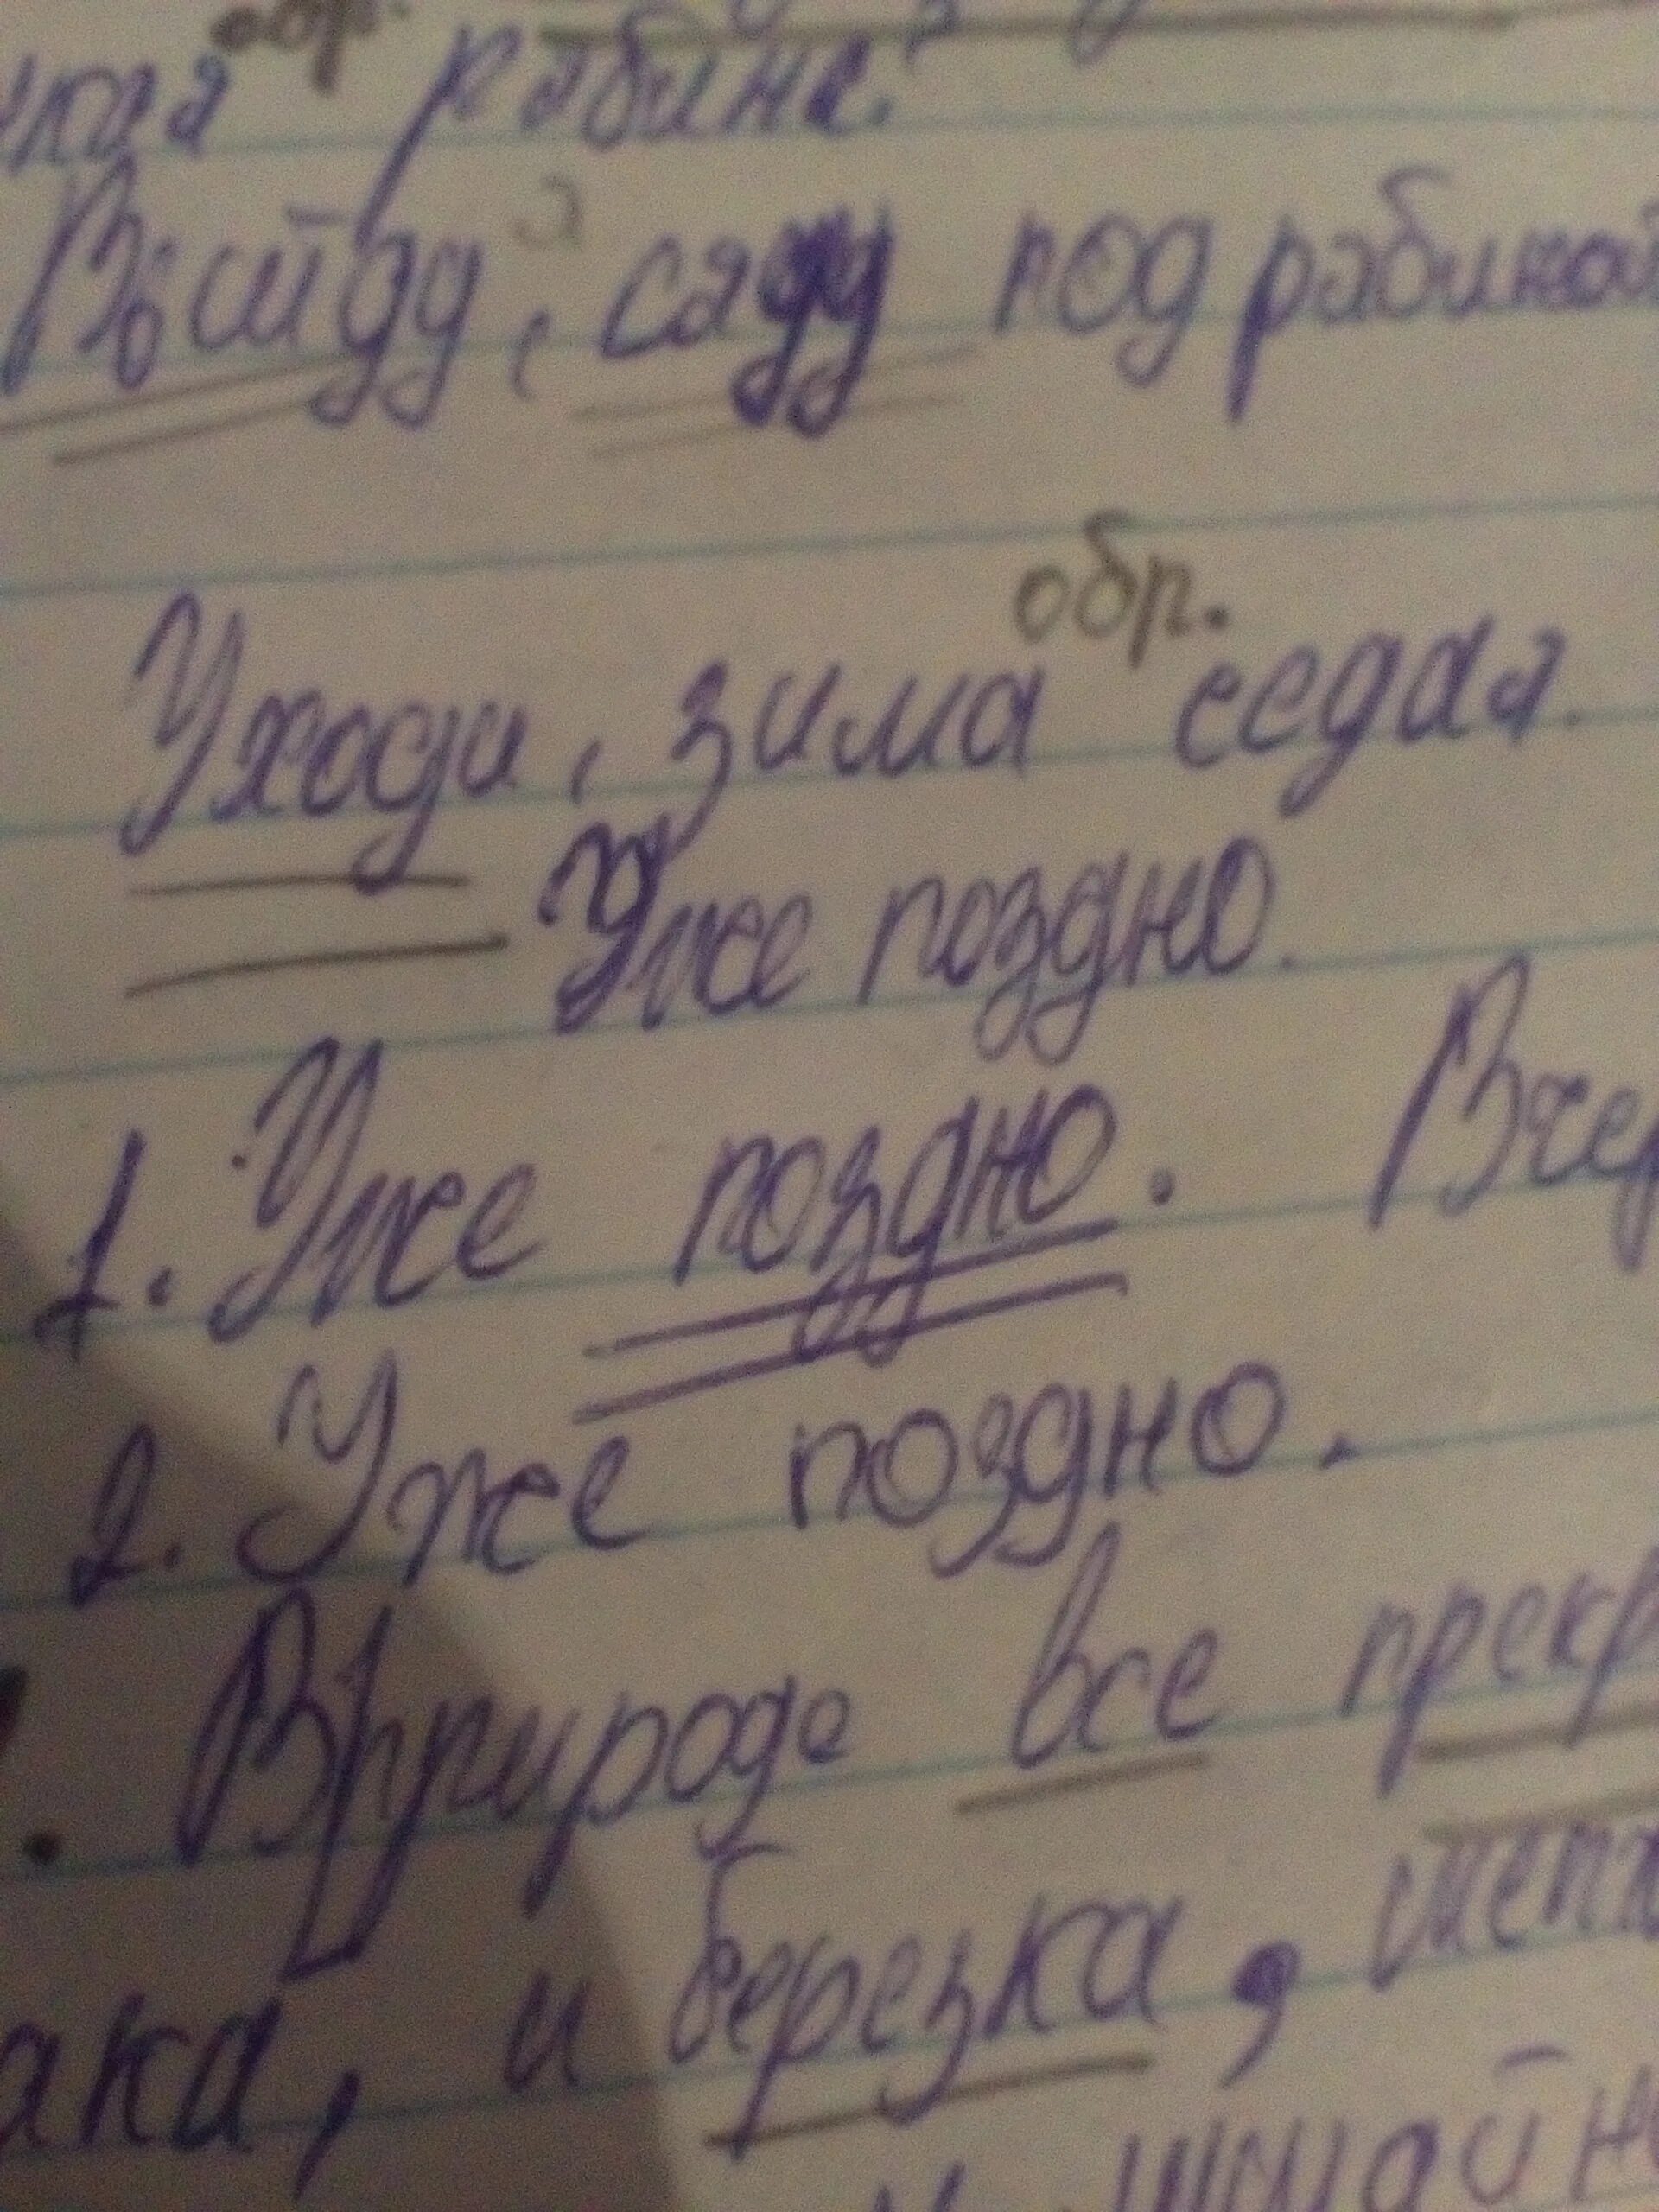 обр.
рабина.
Войду, саду под рабиной
обр.
Уходи, зима седая.
Уже поздно.
1. Уже поздно. Вчер
2. Уже поздно.
В природе все прекр
ака, и березка, шепт